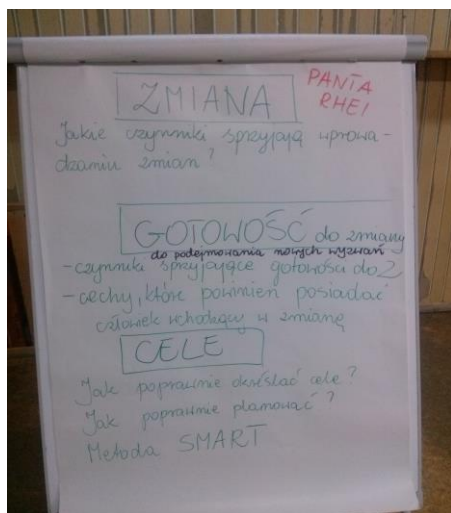 ZMIANA
PANTA
RHEI
Jakie czynniki sprzyjają wprowa-
dzaniu zmian?
GOTOWOŚĆ do zmiany
do podejmowania nowych wyzwań
-czynniki sprzyjające gotowości do Z
-cechy, które powinien posiadać
człowiek wchodzący w zmianę
CELE
Jak poprawnie określać cele?
Jak poprawnie planować?
Metoda SMART